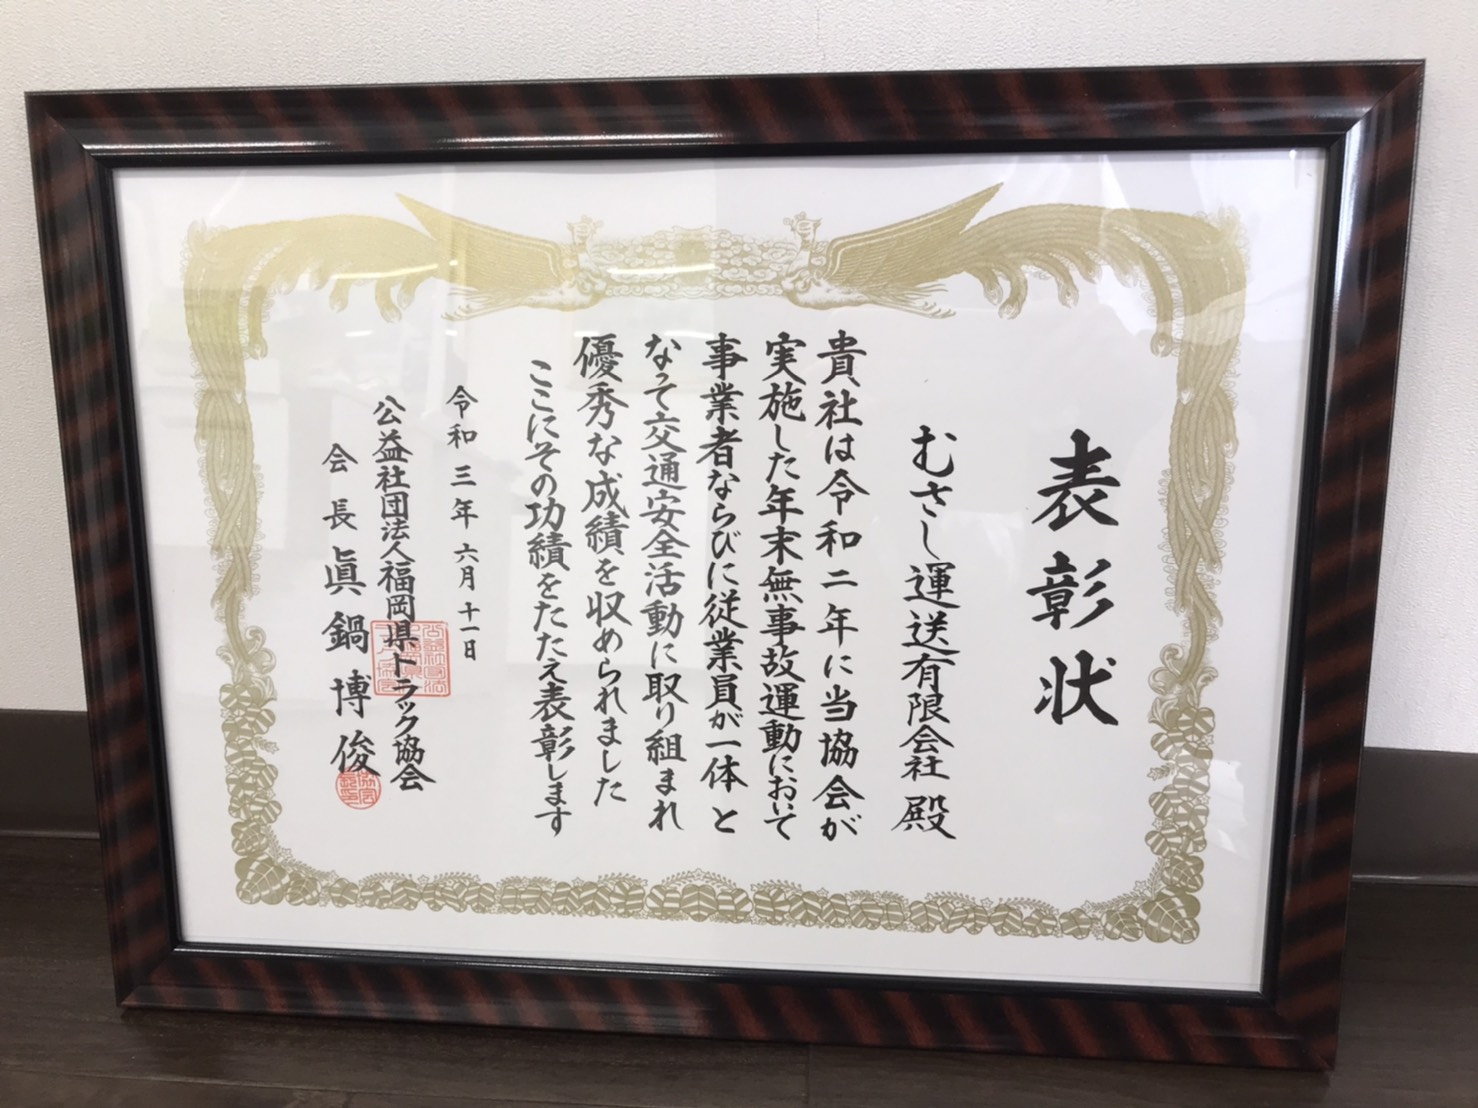 表彰状
むさし運送有限会社 殿
貴社は令和二年に当協会が
実施した年末無事故運動において
事業者ならびに従業員が一体と
なって交通安全活動に取り組まれ
優秀な成績を収められました
ここにその功績をたたえ表彰します
令和三年六月十一日
公益社団法人福岡県トラック協会
会長 眞鍋博俊